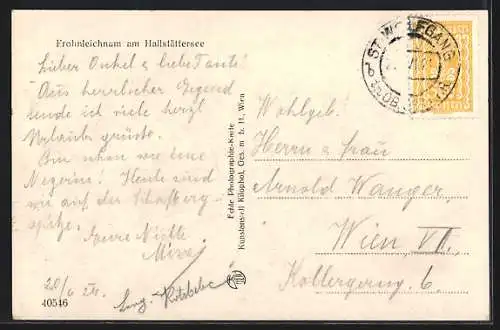 Frohnleichnam am Hallstättersee
Lieber Onkel & liebe Tante!
Aus herrlicher Gegend
sende ich viele herzl
Urlaubsgrüsse.
Bin schon wie eine
Negerin! Heute sind
wir auf der Schafberg-
spitze.
Eure Nichte
Mizzi
20/6 24.
40546
Echte Photographie-Karte
Kunstanstalt Kilophot, Ges. m. b. H., Wien
ST. WOLFGANG
Wohlgeb.
Herrn u Frau
Arnold Wanger,
Wien VII.
Kollergerng. 6.